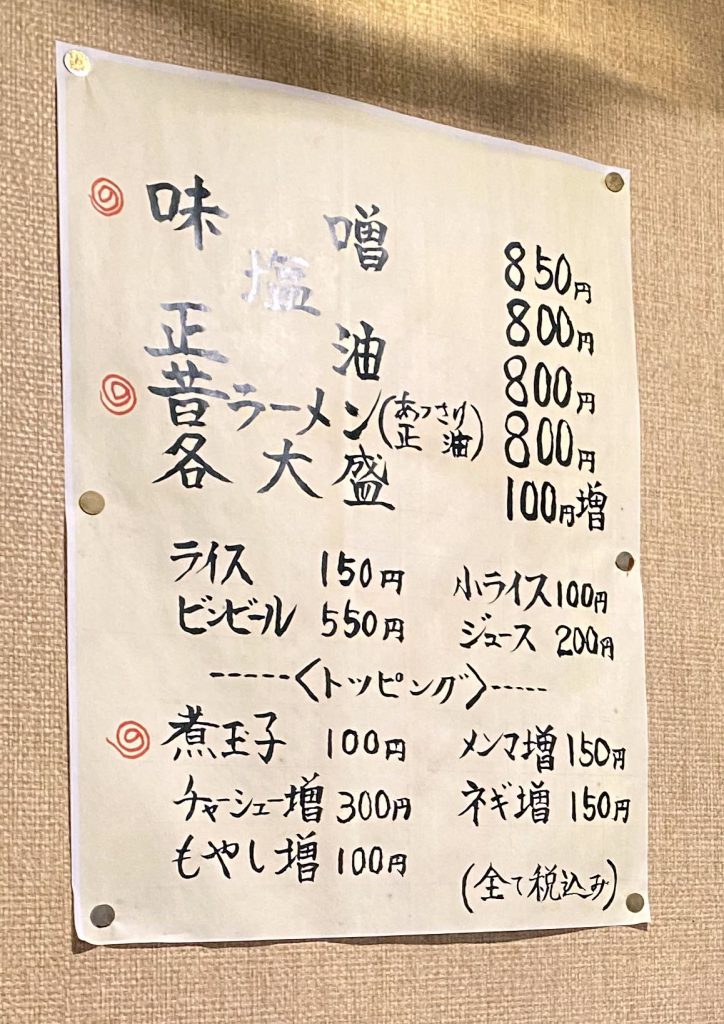 味噌 850円
塩 800円
正油 800円
昔ラーメン(あっさり正油) 800円
各大盛 100円増
ライス 150円 小ライス 100円
ビンビール 550円 ジュース 200円
-----〈トッピング〉-----
煮玉子 100円 メンマ増 150円
チャーシュー増 300円 ネギ増 150円
もやし増 100円
(全て税込み)